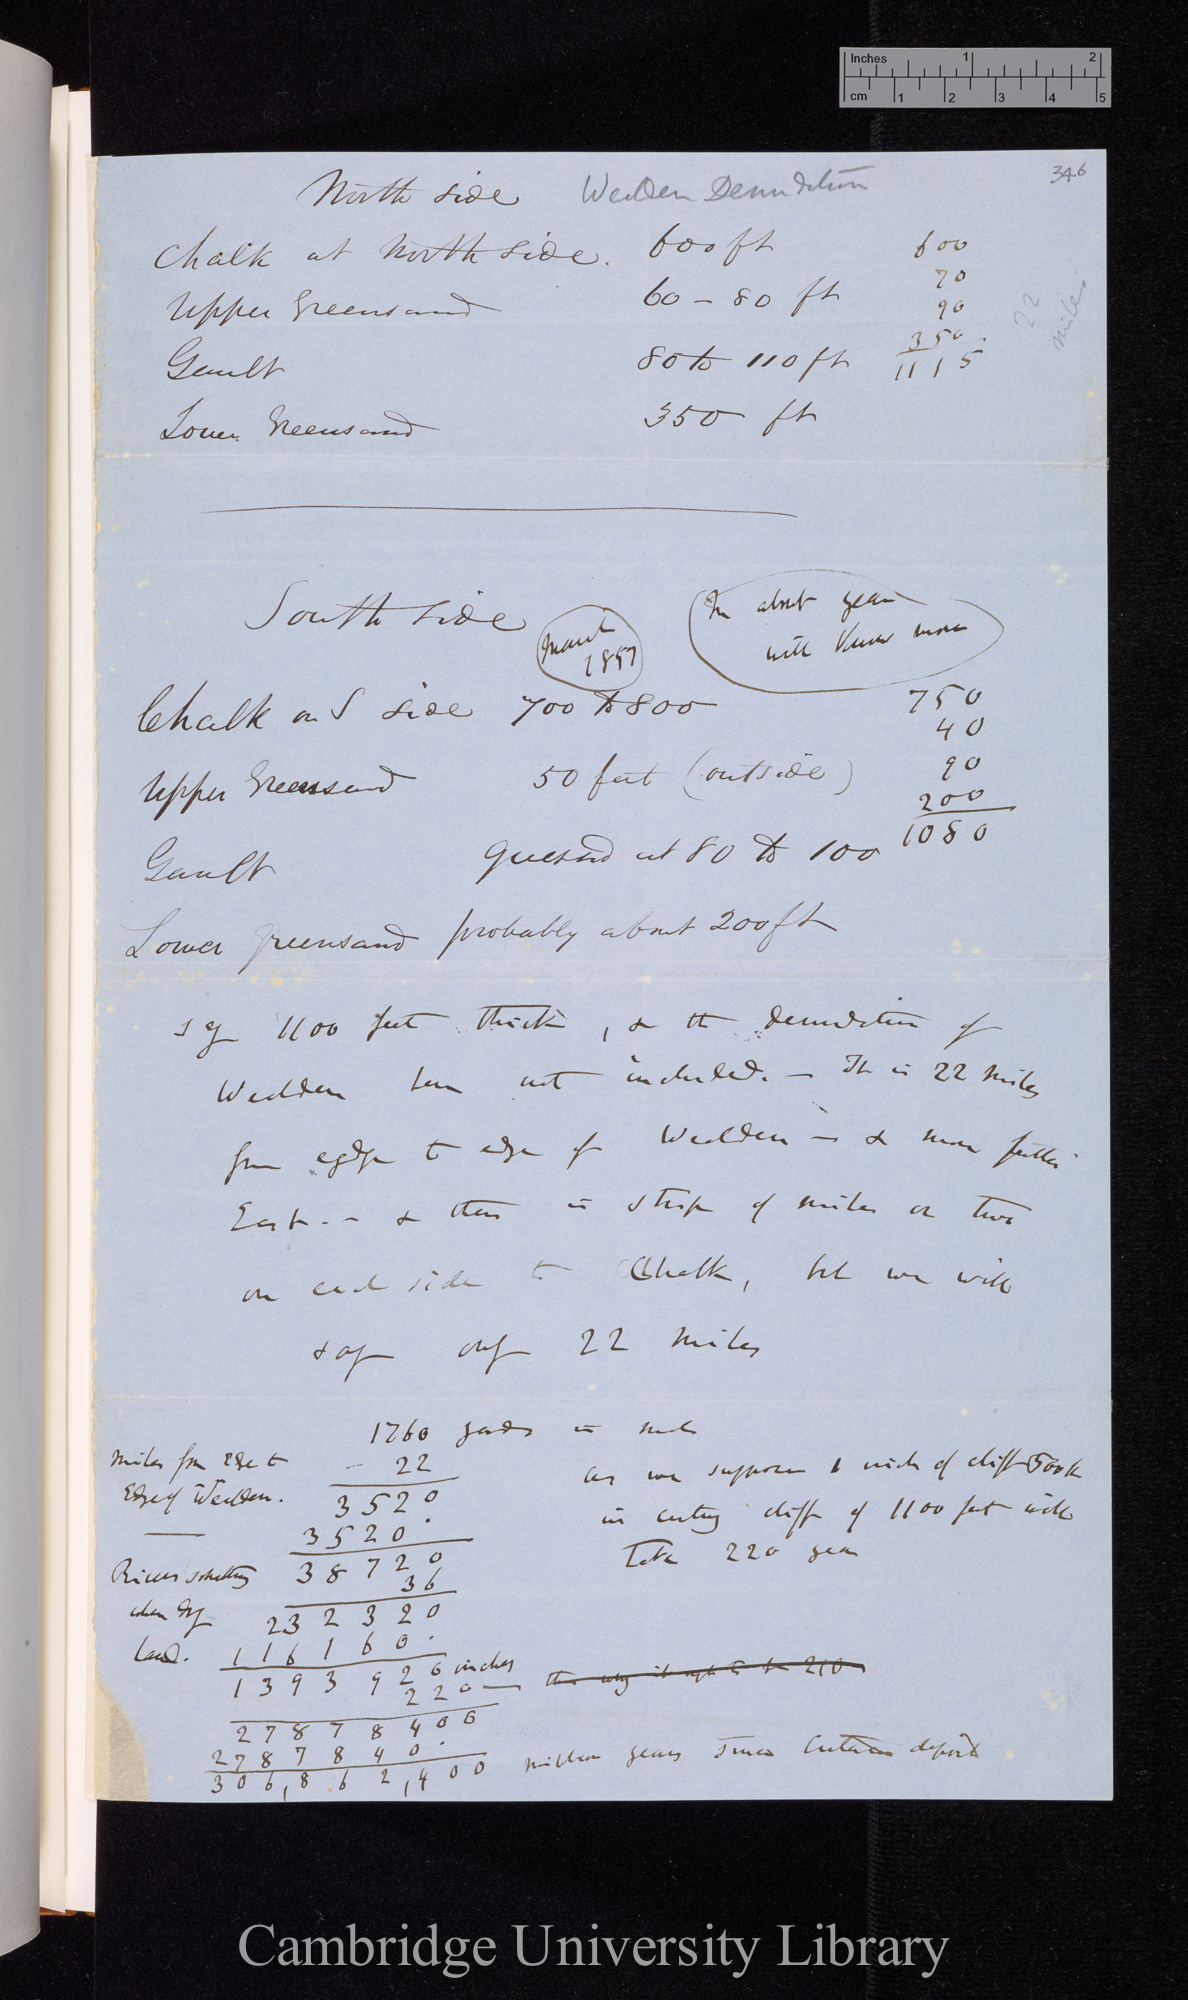 Inches 1 2
cm 1 2 3 4 5
346
North side Wealden Denudation
Chalk at North side. 600 ft
Upper Greensand 60 – 80 ft
Gault 80 to 110 ft
Lower Greensand 350 ft
600
70
90
350.
1115
22
miles
South side
March
1857
In about year
will know more
Chalk on S side 700 to 800
Upper Greensand 50 feet (outside)
Gault guessed at 80 to 100
Lower greensand probably about 200 ft
750
40
90
200
1080
Say 1100 feet thick, & the denudation of
Wealden here not included. — It is 22 miles
from edge to edge of Wealden — & more further
East. – & there is strip of miles or two
on each side to Chalk, but we will
say only 22 miles
1760 yards in mile
22
3520
3520.
38720
36
232320
116160.
1393920 inches
220
27878400
2787840.
306,862,400
miles from edge to
Edge of Wealden.
Rivers something
when dry
land.
as we suppose 1 inch of cliff 500 ft
in cutting cliff of 1100 feet will
take 220 year
million years since Cretaceous deposits
Cambridge University Library